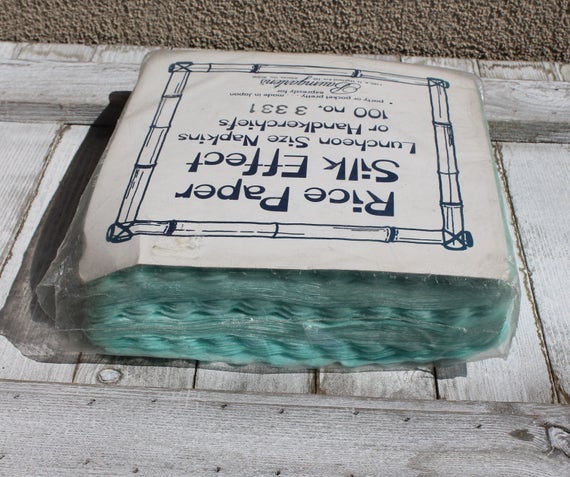 Rice Paper
Silk Effect
Luncheon Size Napkins
or Handkerchiefs
100 no. 3331
• party or pocket pretty . . . made in Japan
expressly for
Baumgarten's